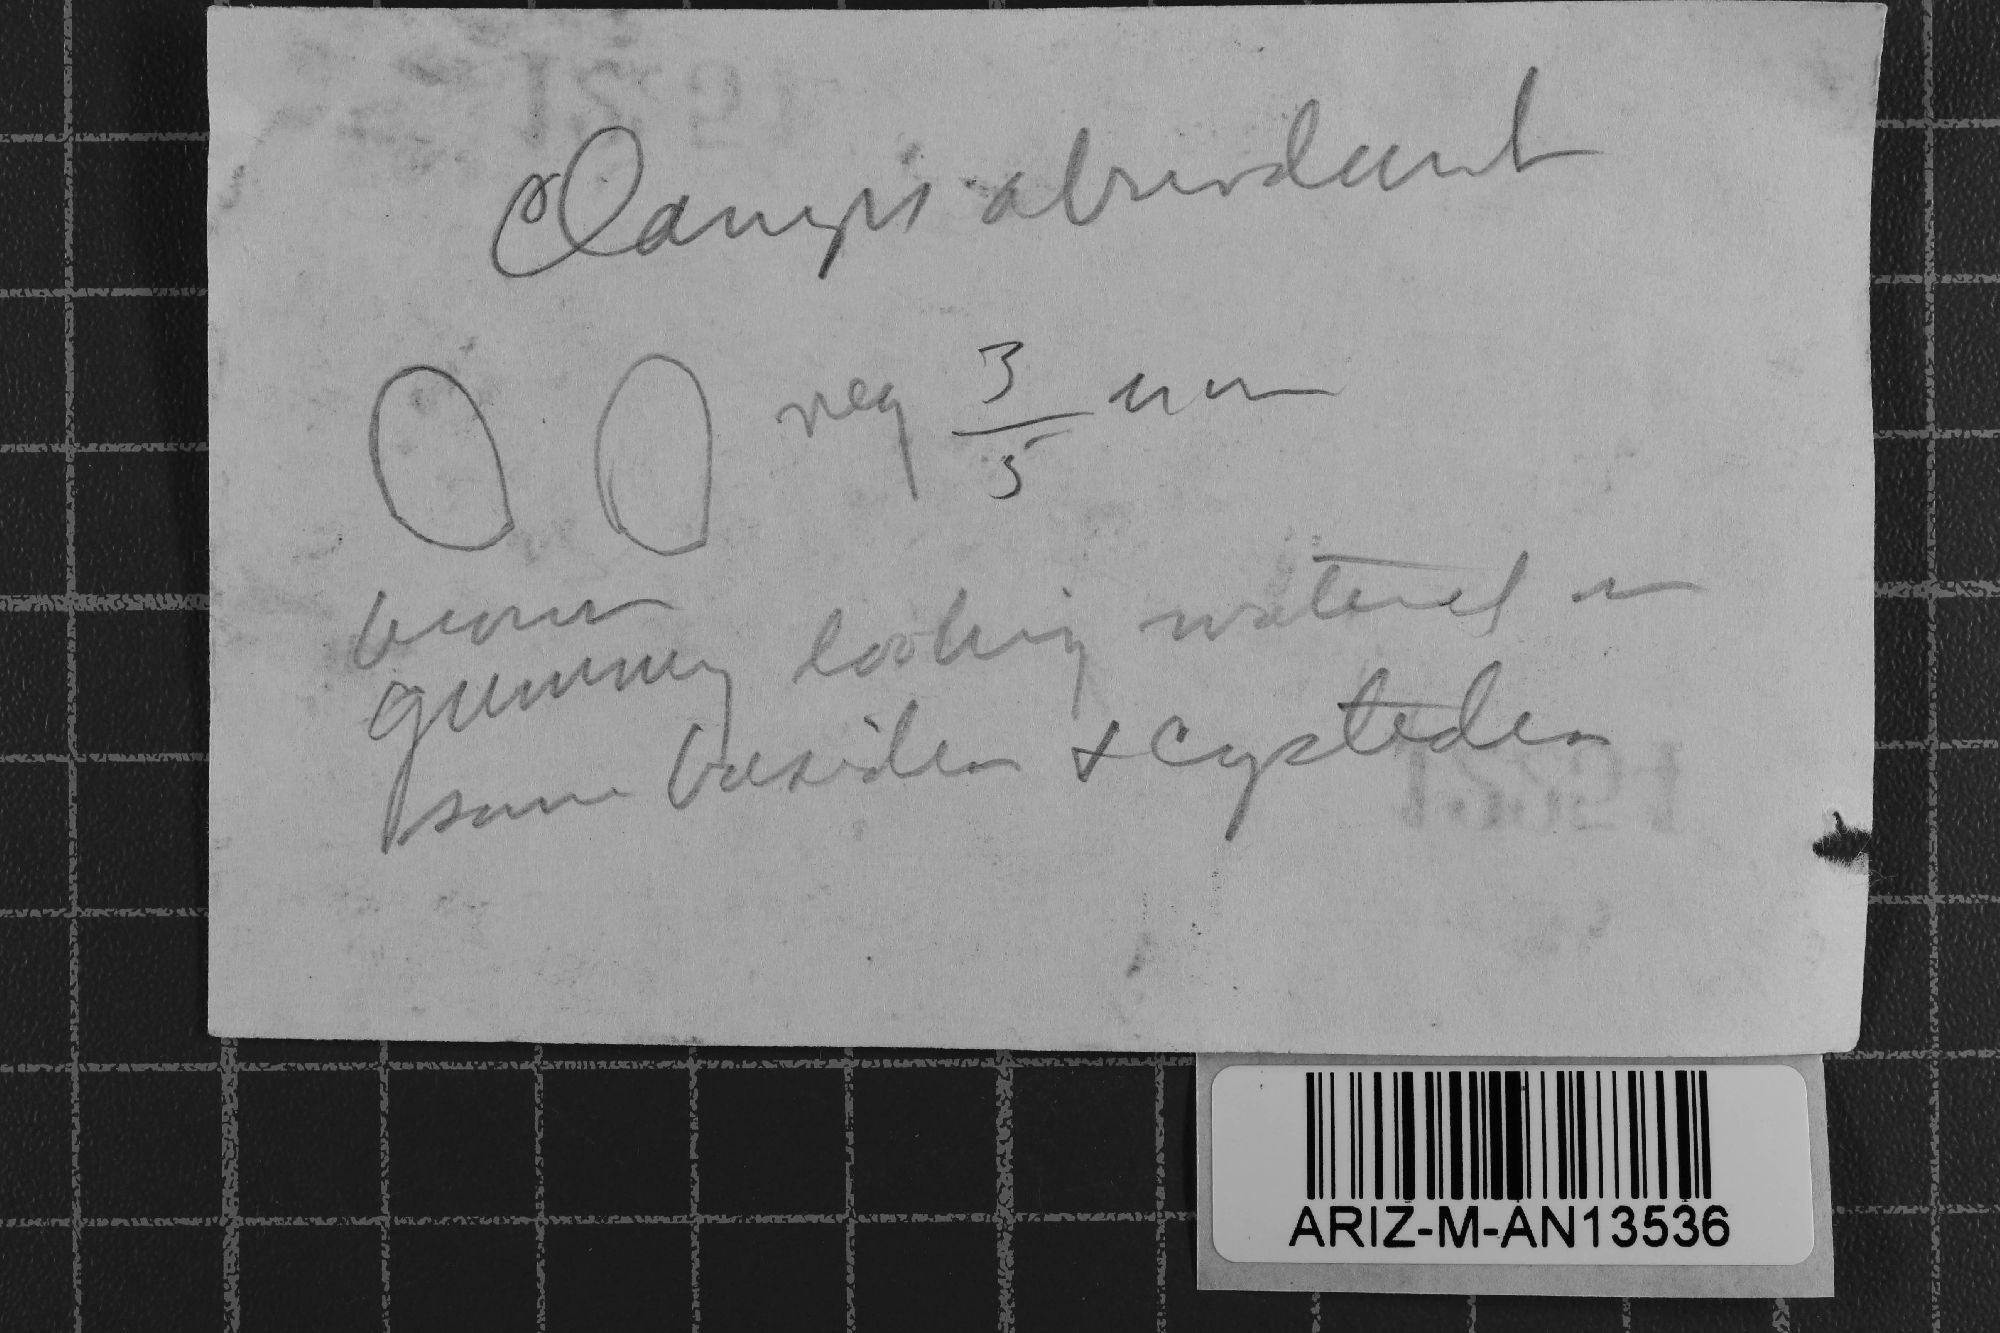 Clamps abundant
neg 3/5 um
brown
gummy looking material in
some basidia + cystidia
ARIZ-M-AN13536